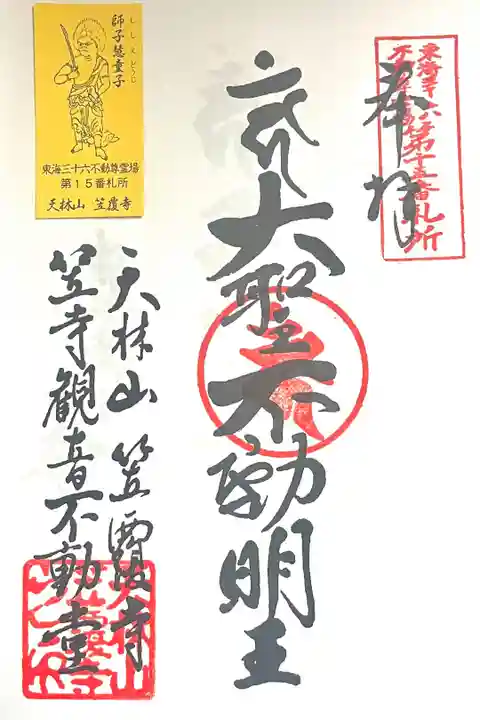 東海三十六不動尊第十五番札所
奉拝
大聖不動明王
天林山 笠覆寺
笠寺観音不動堂
ししえどうじ
師子慧童子
東海三十六不動尊霊場
第15番札所
天林山 笠覆寺